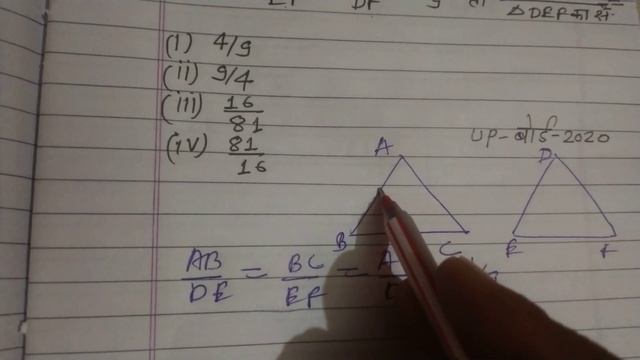 DF 9
Δ DEF का क्षे.
(i) 4/9
(ii) 9/4
(iii) 16/81
(iv) 81/16
UP-बोर्ड-2020
A
D
B C E F
AB/DE = BC/EF = A